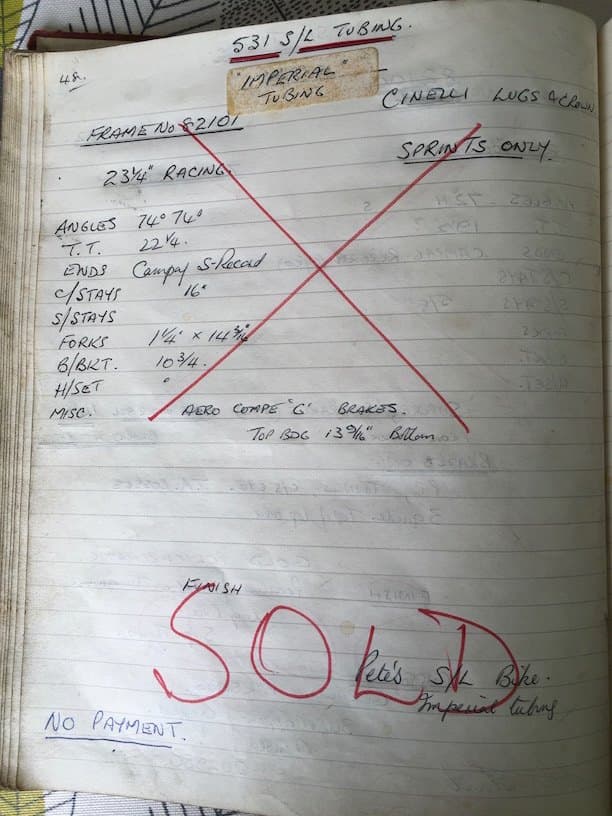 531 S/L TUBING.
48.
"IMPERIAL"
TUBING
CINELLI LUGS & CROWN
FRAME No 82101
SPRINTS ONLY.
23¼" RACING.
ANGLES 74° 74°
T.T. 22¼.
ENDS Campag S-Record
C/STAYS 16"
S/STAYS
FORKS 1¼" × 14 3/16"
B/BKT. 10¾.
H/SET
MISC. AERO COMPE "G" BRAKES.
TOP BDG 13 9/16" Bottom
FINISH
SOLD
Pete's S/L Bike.
Imperial tubing
NO PAYMENT.